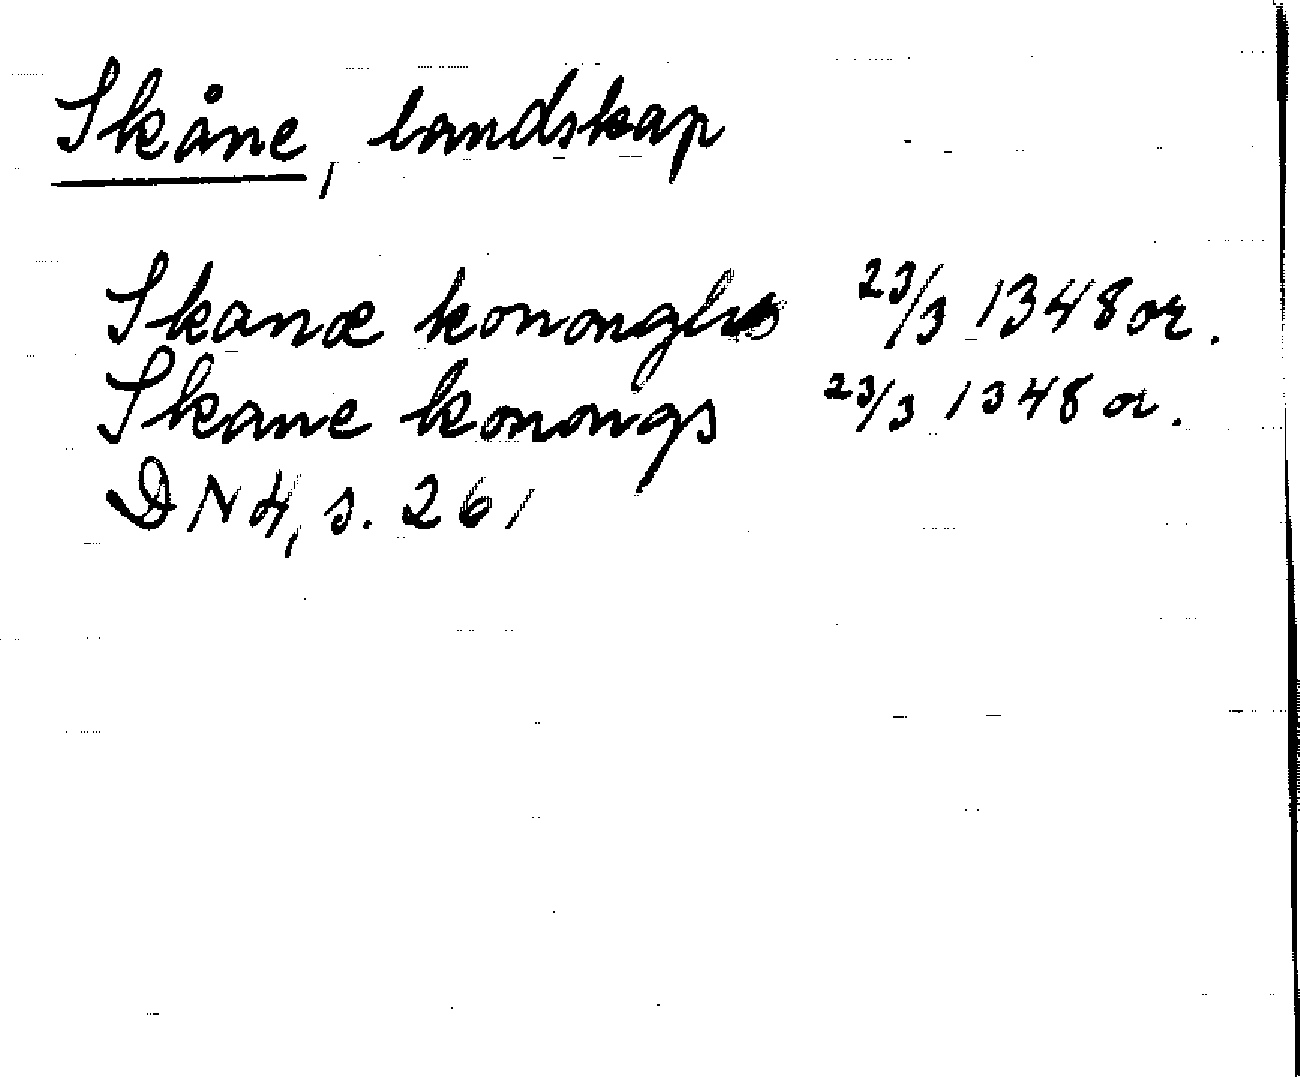 Skåne, landskap
Skanæ kononghs 23/3 1348 or.
Skane konongs 23/3 1348 or.
DN 4, s. 261